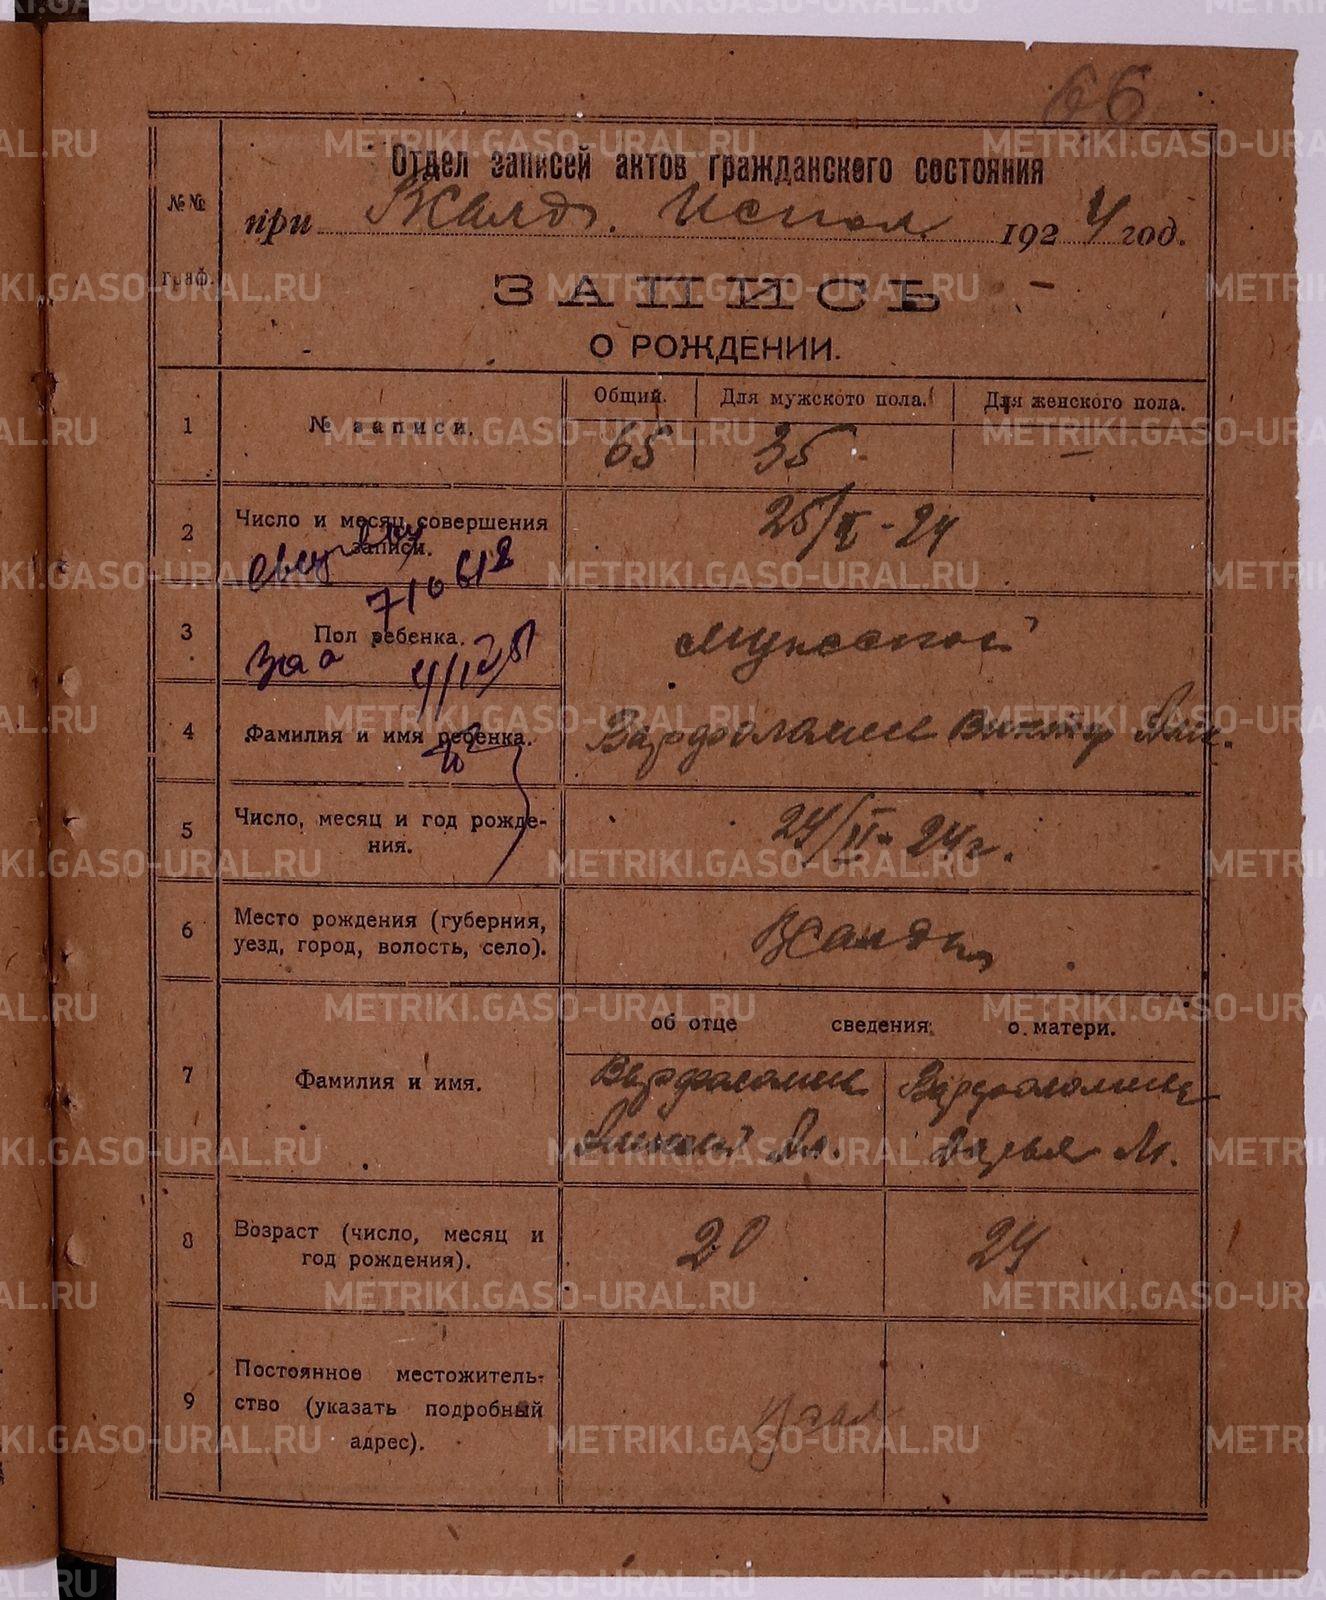 66
Отдел записей актов гражданского состояния
№№ граф.
при Испол. 1924 год.
ЗАПИСЬ
О РОЖДЕНИИ.
1 № записи. Общий. Для мужского пола. Для женского пола.
65 35 —
2 Число и месяц совершения записи. 25/II-24
710618
3 Пол ребенка. мужской
4 Фамилия и имя ребенка. Варфоломеев Виктор
5 Число, месяц и год рождения. 24/II-24г.
6 Место рождения (губерния, уезд, город, волость, село).
об отце сведения о матери.
7 Фамилия и имя. Варфоломеев Варфоломеева
Дарья М.
8 Возраст (число, месяц и год рождения). 20 24
9 Постоянное местожительство (указать подробный адрес).
METRIKI.GASO-URAL.RU